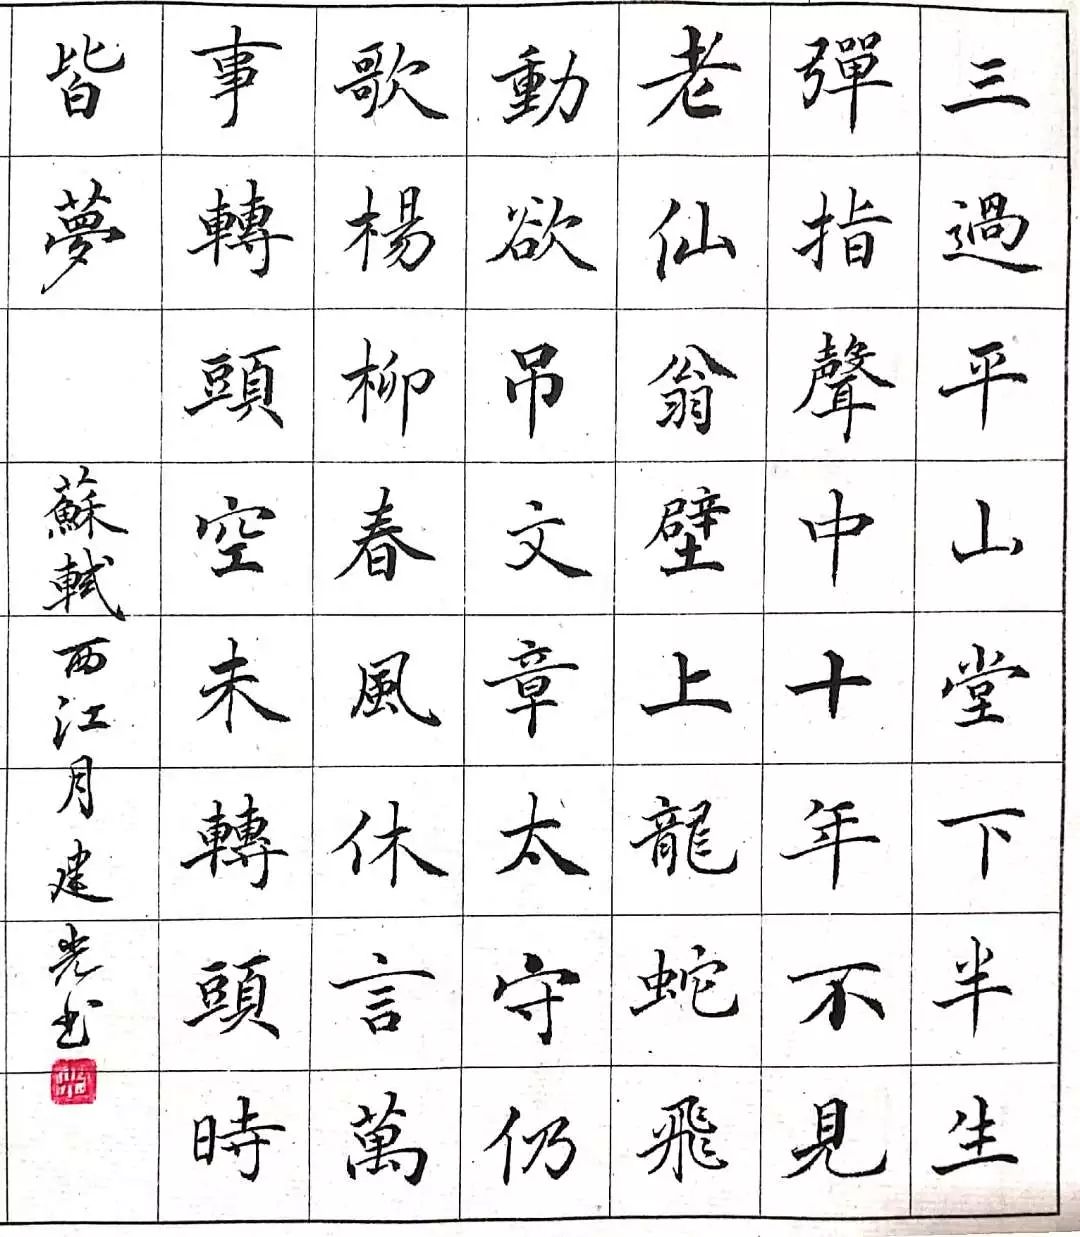 三過平山堂下半生
彈指聲中十年不見
老仙翁壁上龍蛇飛
動欲吊文章太守仍
歌楊柳春風休言萬
事轉頭空未轉頭時
皆夢
蘇軾西江月建光书